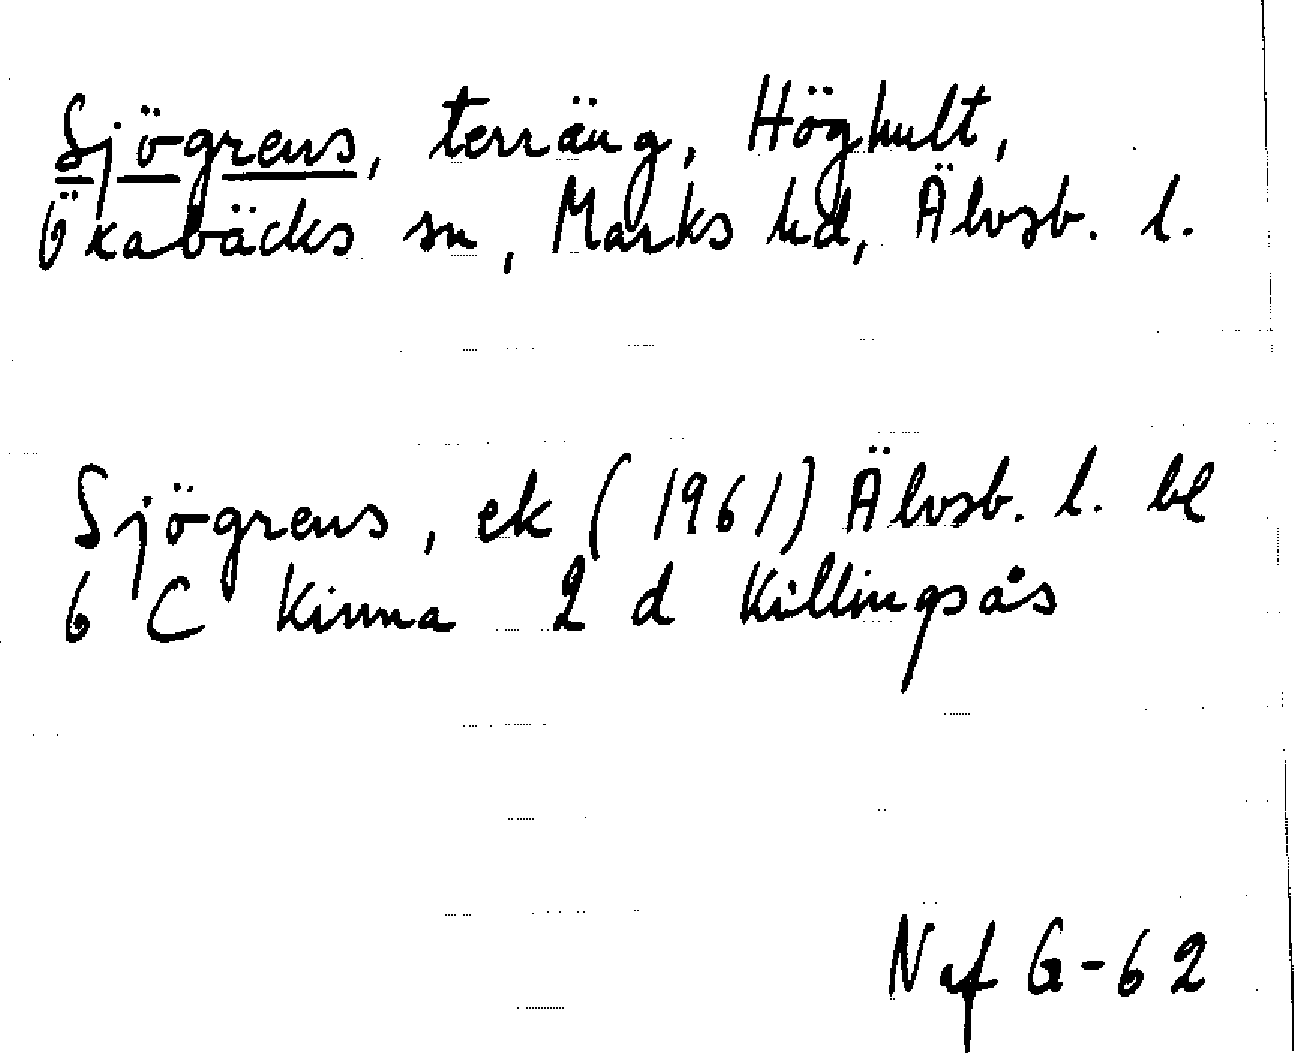 Sjögrens, terräng, Höghult,
Öxabäcks sn, Marks hd, Älvsb. l.
Sjögrens, ek (1961) Älvsb. l. bl
6 C Kinna 2 d Killingsås
Naf G-62